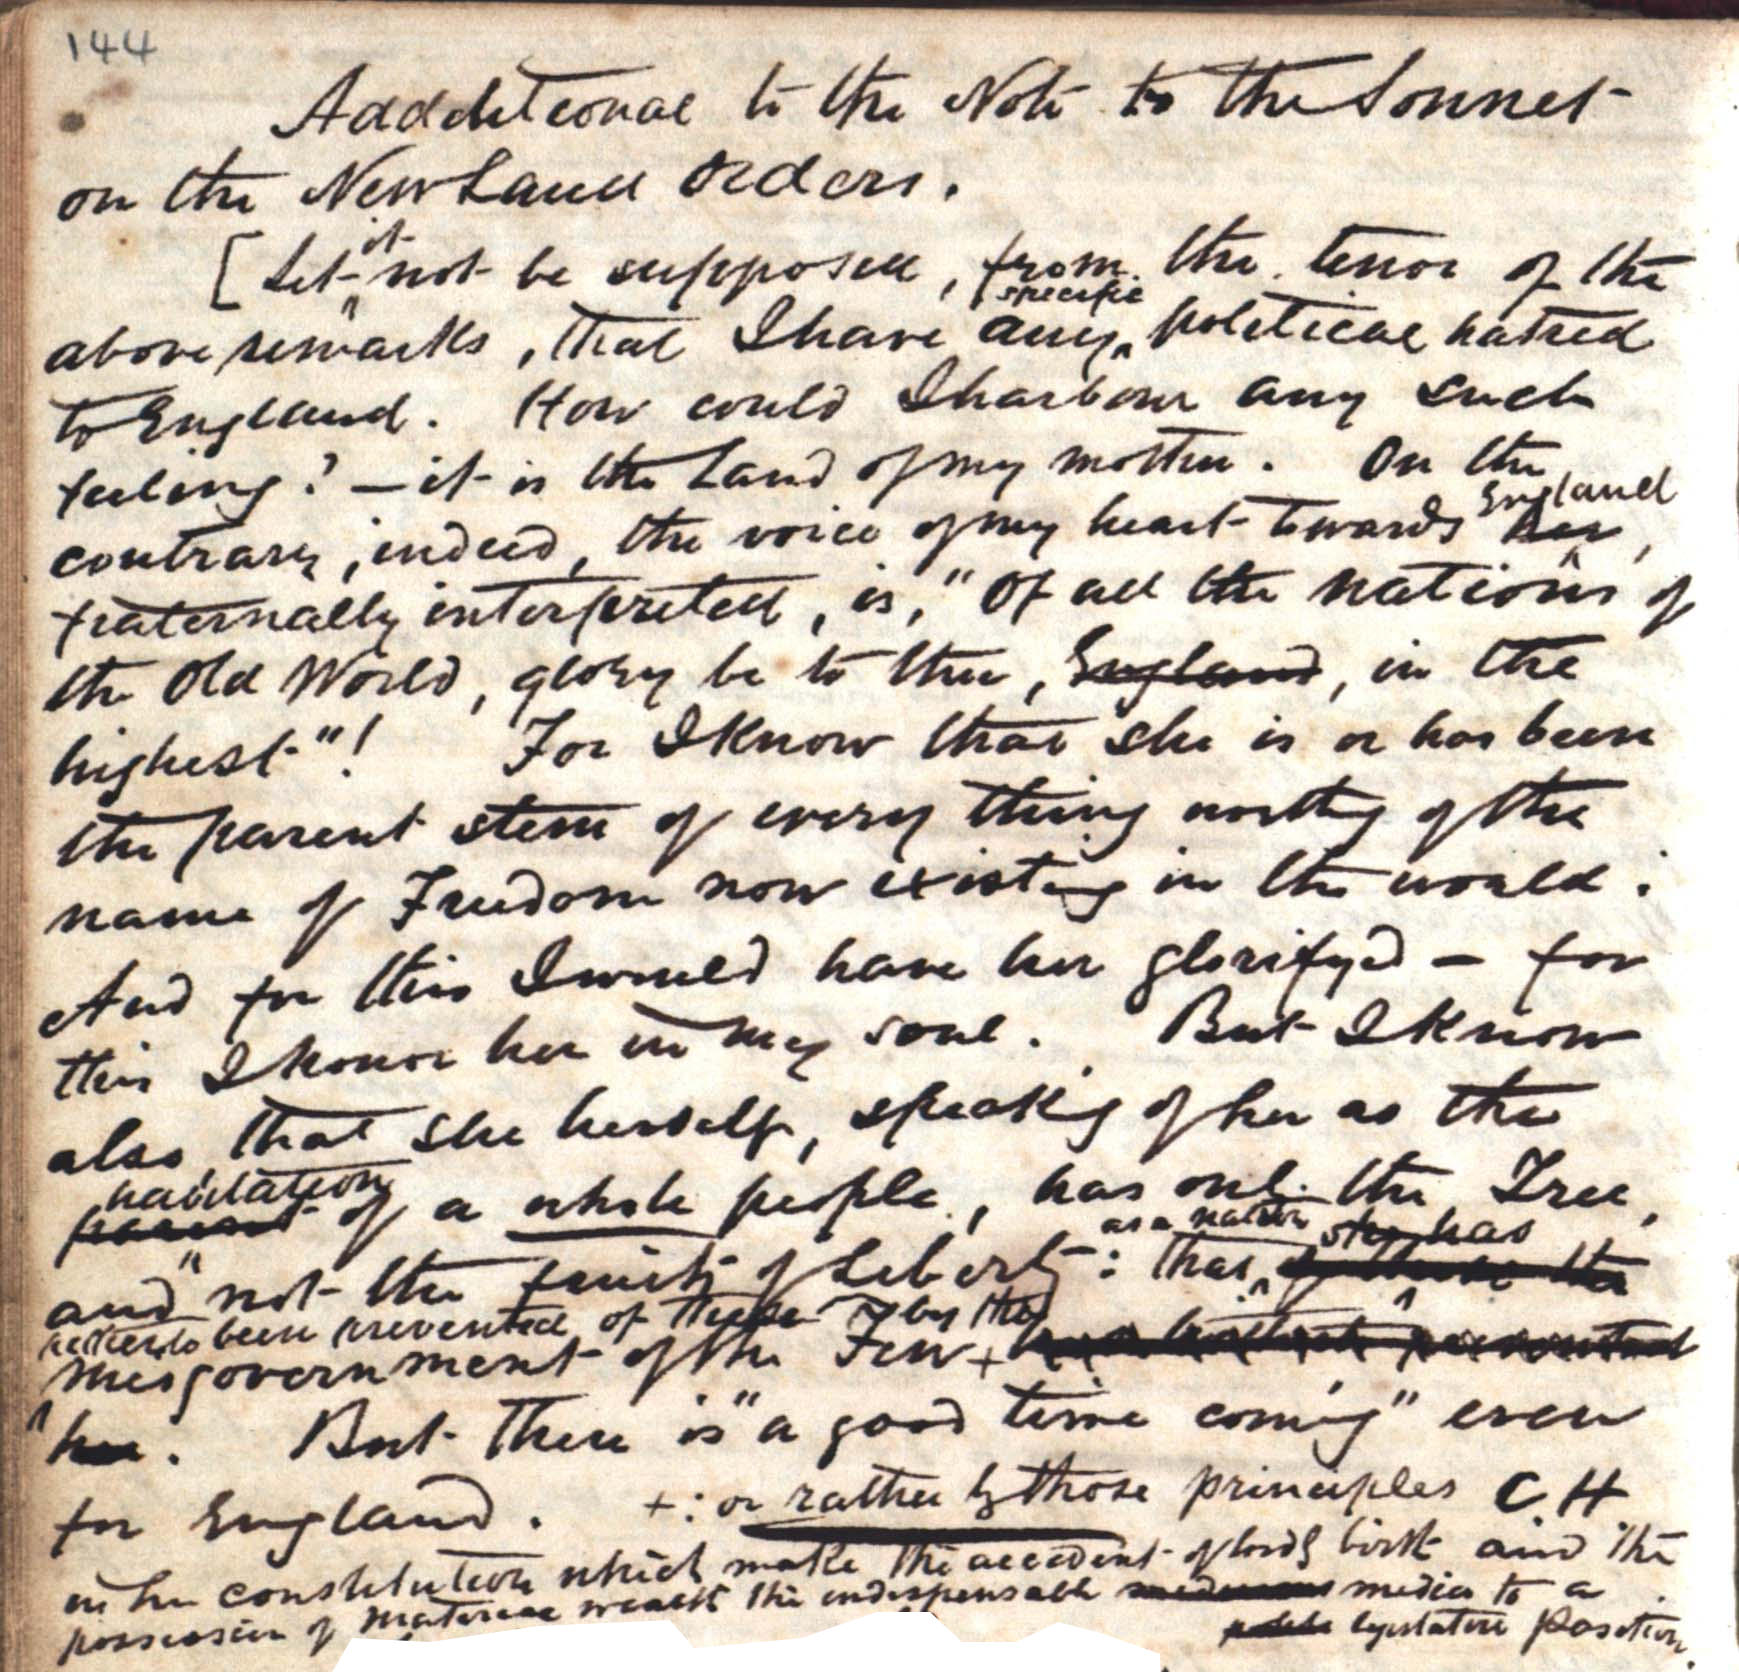 144
Addditional to the Note to the Sonnet
on the New Land Orders.
[Let it not be supposed, from the tenor of the
above remarks, that I have any specific political hatred
to England. How could I harbour any such
feeling? — it is the Land of my mother. On the
contrary, indeed, the voice of my heart towards her England,
fraternally interpreted, is, "Of all the nations of
the Old World, glory be to thee, England, in the
highest"! For I know that she is or has been
the parent stem of every thing worthy of the
name of Freedom now existing in the world:
And for this I would have her glorifyd — for
this I honor her in my soul. But I know
also, that she herself, speaking of her as the
parent habitation of a whole people, has only the Tree,
and not the fruits of Liberty: that as a nation she has
been prevented of these by the
misgovernment of the Few +
her. But there is "a good time coming" even
for England. +: or rather by those principles C H
in her constitution which make the accident of lordly birth and the
possession of material wealth the indispensable media to a
legislative position.